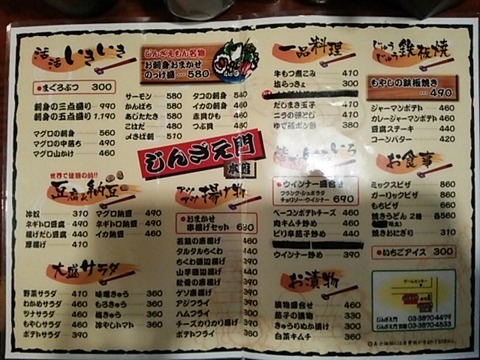 活活いきいき
●まぐろぶつ 300
刺身の三点盛り 990
刺身の五点盛り 1,190
マグロの刺身 560
マグロの中落ち 490
マグロ山かけ 460
じんざえもん名物
お刺身おまかせ
のっけ盛 580
サーモン 580
かんぱち 580
あじたたき 580
こはだ 480
〆さば刺 510
タコの刺身 560
イカの刺身 460
赤貝ひも 460
つぶ貝 480
じんざえ門
本館
豆腐と納豆
冷奴 310
ネギトロ豆腐 490
揚げだし豆腐 460
厚揚げ 410
マグロ納豆 490
ネギトロ納豆 490
イカ納豆 460
大盛サラダ
野菜サラダ 410
わかめサラダ 460
ツナサラダ 460
もやしサラダ 460
ポテトサラダ 360
味噌きゅう 360
もろきゅう 360
梅きゅう 360
冷やしトマト 360
揚げ物
●おまかせ
串揚げセット 690
若鶏の唐揚げ 460
タルタルちくわ 440
ちくわ磯辺揚げ 390
山芋磯辺揚げ 460
軟骨の唐揚げ 460
ゲソ唐揚げ 460
アジフライ 360
ハムフライ 360
チーズカリカリ揚げ 390
ポテトフライ 360
一品料理
牛もつ煮こみ 410
塩らっきょ 300
だしまき玉子 410
ニラの卵とじ 410
ゆで豚ポン酢 480
●ウインナー盛合せ
フランクショルダー
チョリソーウインナー
690
ベーコンポテトチーズ 460
肉キムチ炒め 440
ピリ辛茄子炒め 440
ウインナー炒め 390
お漬物
漬物盛合せ 460
茄子の漬物 330
きゅうりぬか漬け 300
白菜キムチ 360
じゅうじゅう鉄板焼
もやしの鉄板焼き
490
ジャーマンポテト 460
カレージャーマンポテト 460
豆腐ステーキ 440
コーンバター 440
お食事
ミックスピザ 560
ガーリックピザ 560
もちピザ 660
焼きうどん 2種 各560
焼きおにぎり 310
●いちごアイス 300
ゲームセンター
じんざえ門 03-3890-4479